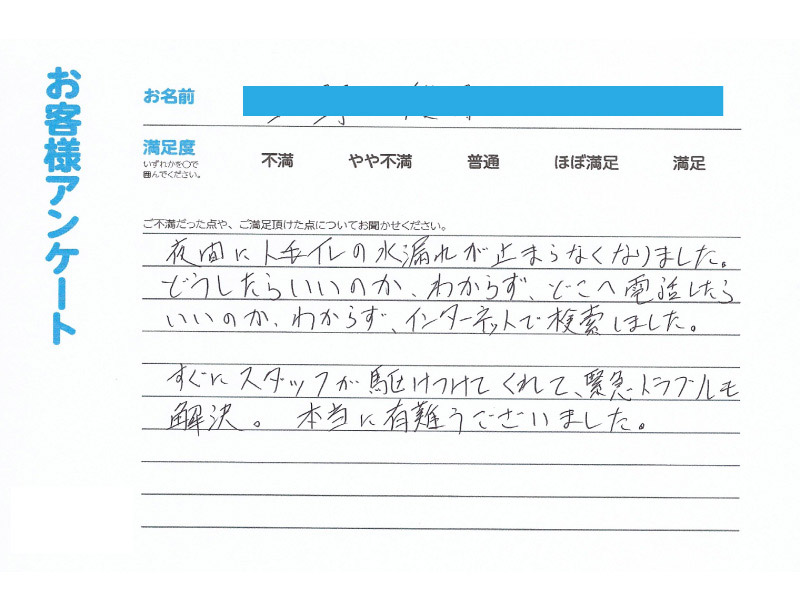 お客様アンケート
お名前
満足度
いずれかを○で
囲んでください。
不満 やや不満 普通 ほぼ満足 満足
ご不満だった点や、ご満足頂けた点についてお聞かせください。
夜間にトイレの水漏れが止まらなくなりました。
どうしたらいいのか、わからず、どこへ電話したら
いいのか、わからず、インターネットで検索しました。
すぐにスタッフが駆けつけてくれて、緊急トラブルも
解決。 本当に有難うございました。